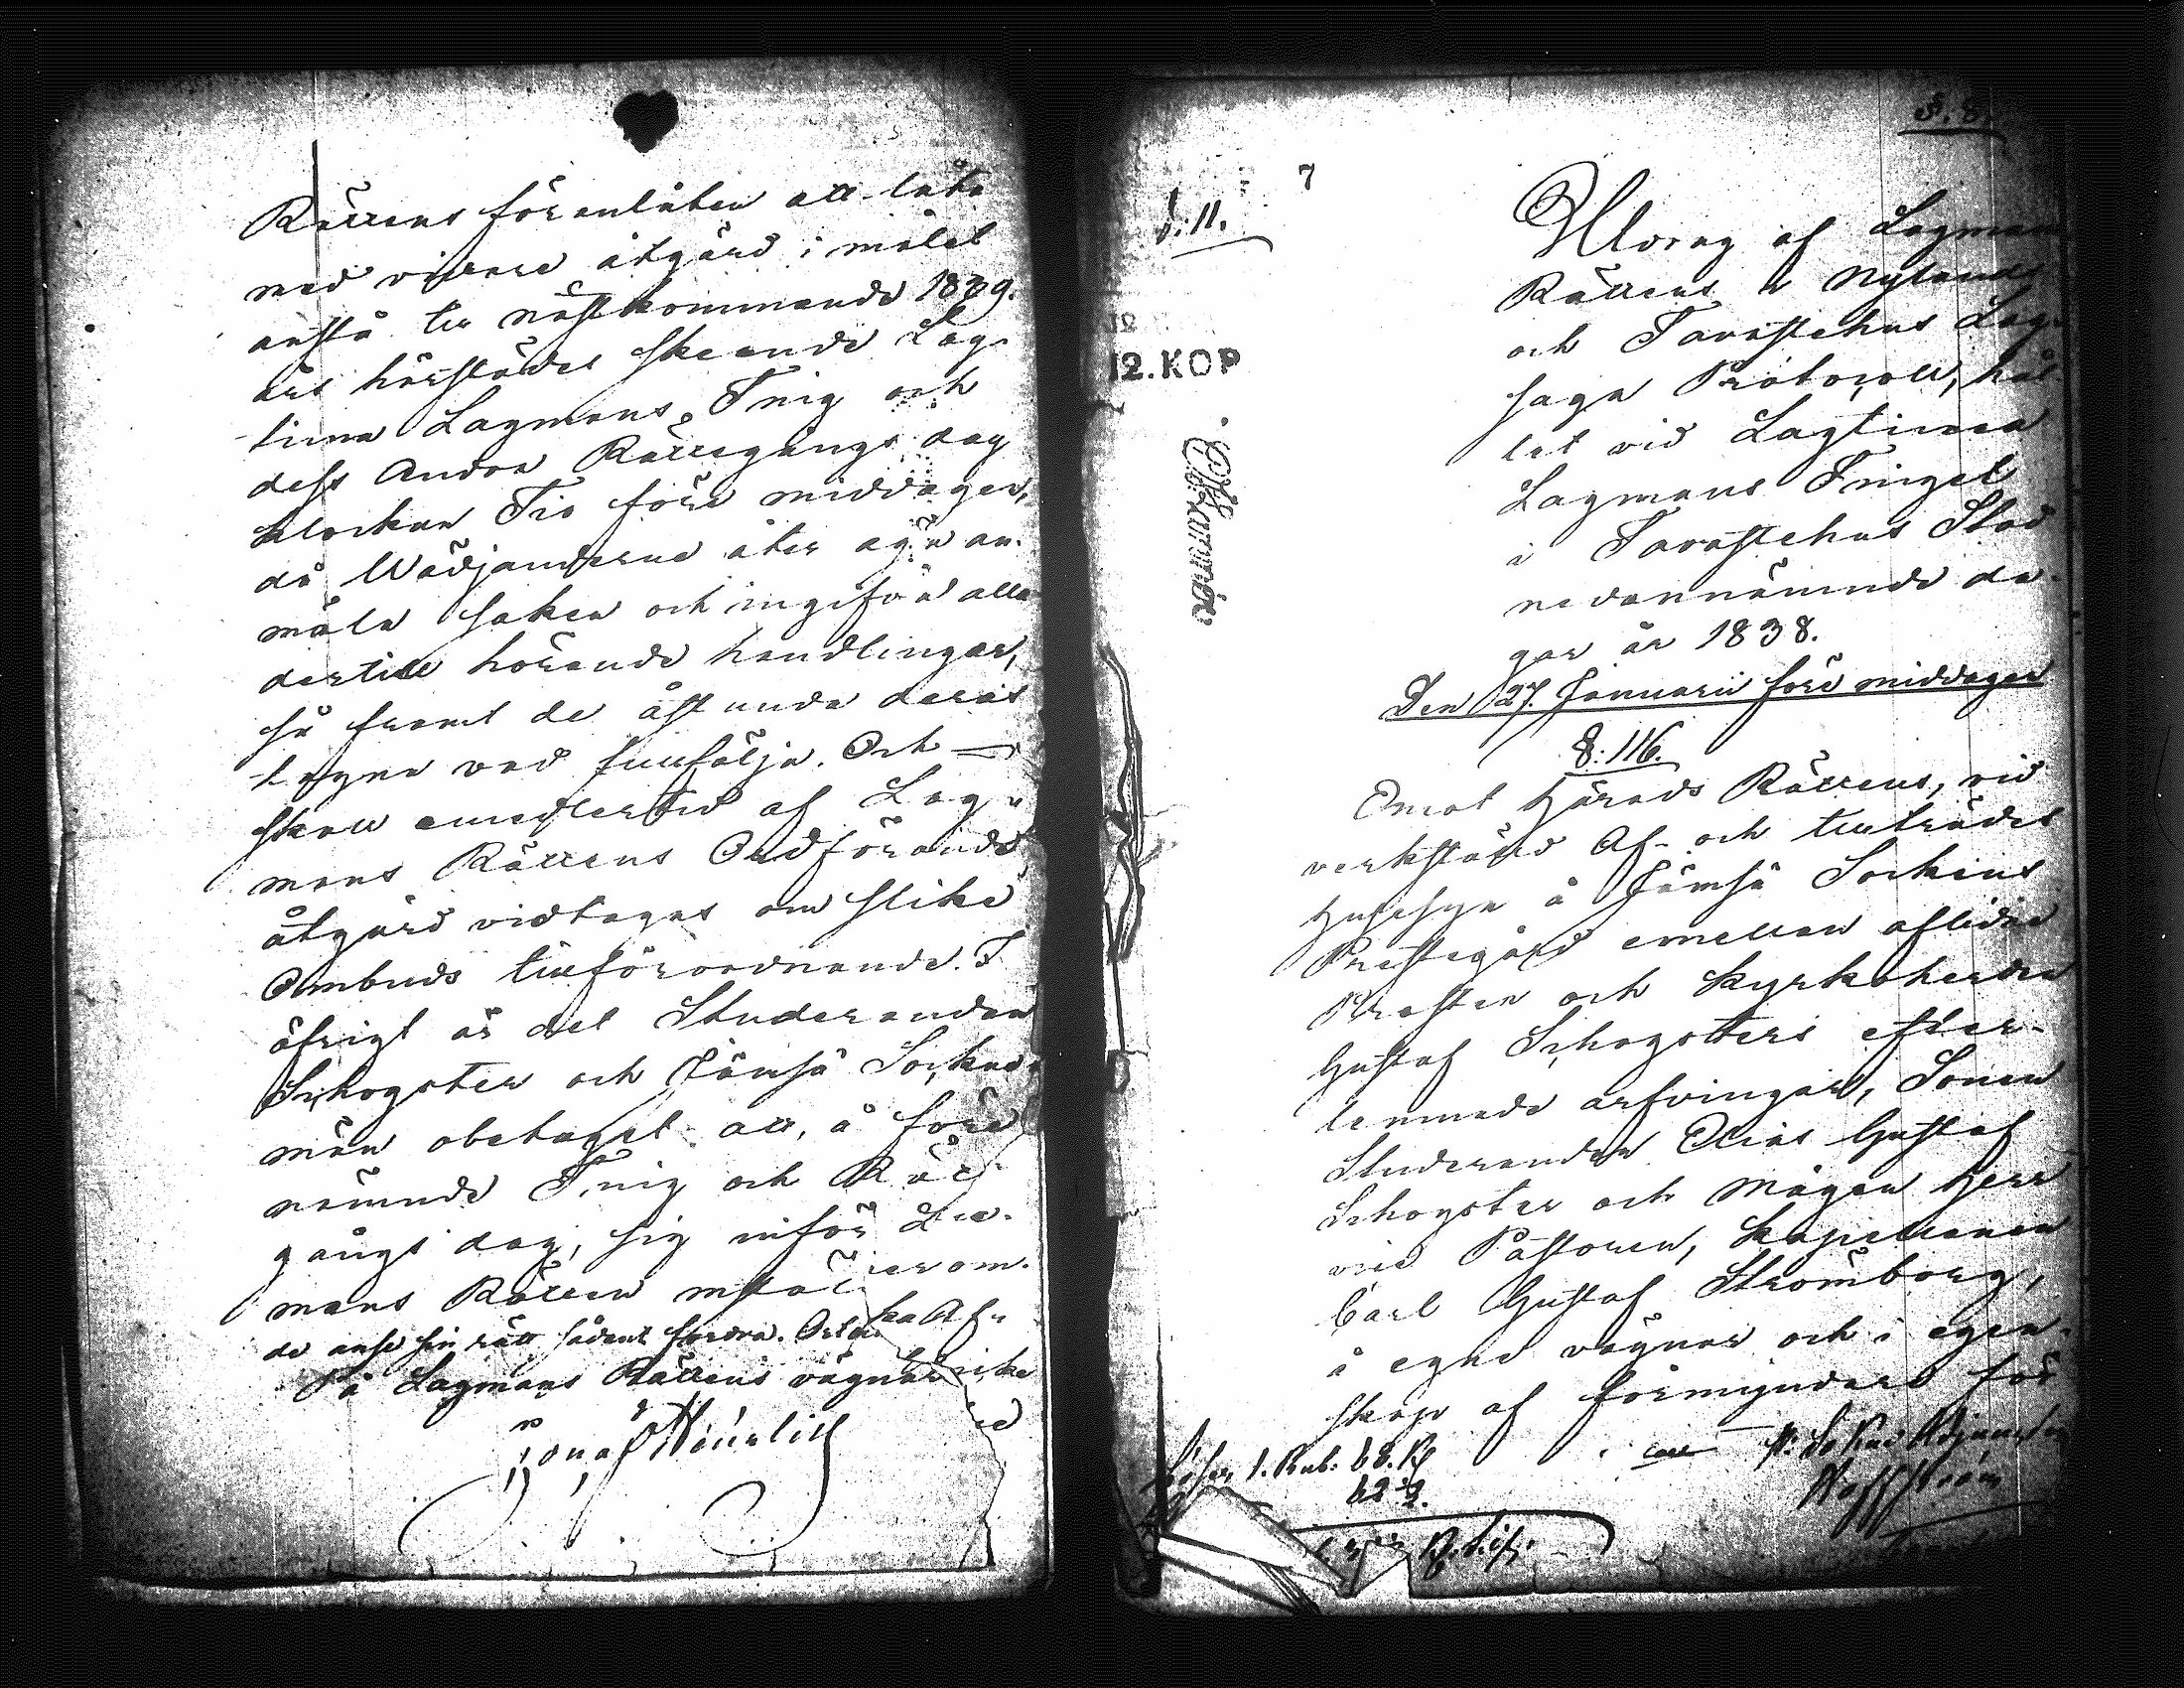 Rättens föranlåten att låta
med vidare åtgärd i målet
anstå till nästkommande 1839.
års härstädes skeende Lag-
tima Lagmans Ting och
dess Andra Rättegångs dag
klockan Tio före middagen,
då Wädjanderne åter äga an-
mäla saken och ingifva alla
dertill hörande handlingar,
så framt de åstunda deras
tagna vad fullfölja. Och
skall emedlertid af Lag-
mans Rättens Ordförande
åtgärd vidtagas om slike
Ombuds tillförordnande. I
öfrigt är det Studeranden
Schogster och Jämsä Sockne-
män obetaget att, å före
nämnde Ting och Rätte
gångs dag, sig inför Lag-
mans Rätten inställa
de anse sin rätt sådant fordra.
På Lagmans Rättens vägnar
Jonas
S. 8.
7
§. 11.
Utdrag af Lagmans
Rättens i Nylands
och Tavastehus Lag-
saga Protocoll, hål-
let vid Lagtima
Lagmans Tinget
i Tavastehus Stad
nedannämnde da-
gar år 1838.
12. KOP
Den 27. Januarii före middagen
§. 116.
Emot Härads Rättens, vid
verkstäld Af- och tillträdes
Husesyn å Jämsä Sockens
Prestegård emellan aflidne
Prosten och Kyrkoherden
Gustaf Schogsters efter-
lemnade arfvingar, Sonen
Studeranden Elias Gustaf
Schogster och Mågen Herr
vice Pastoren, Kapellanen
Carl Gustaf Strömborg,
å egne vägnar och i egen-
skap af förmyndare för
Lösen 1. Rub. 68. K